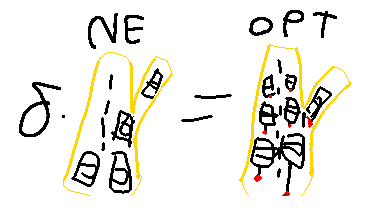 NE OPT
δ. =